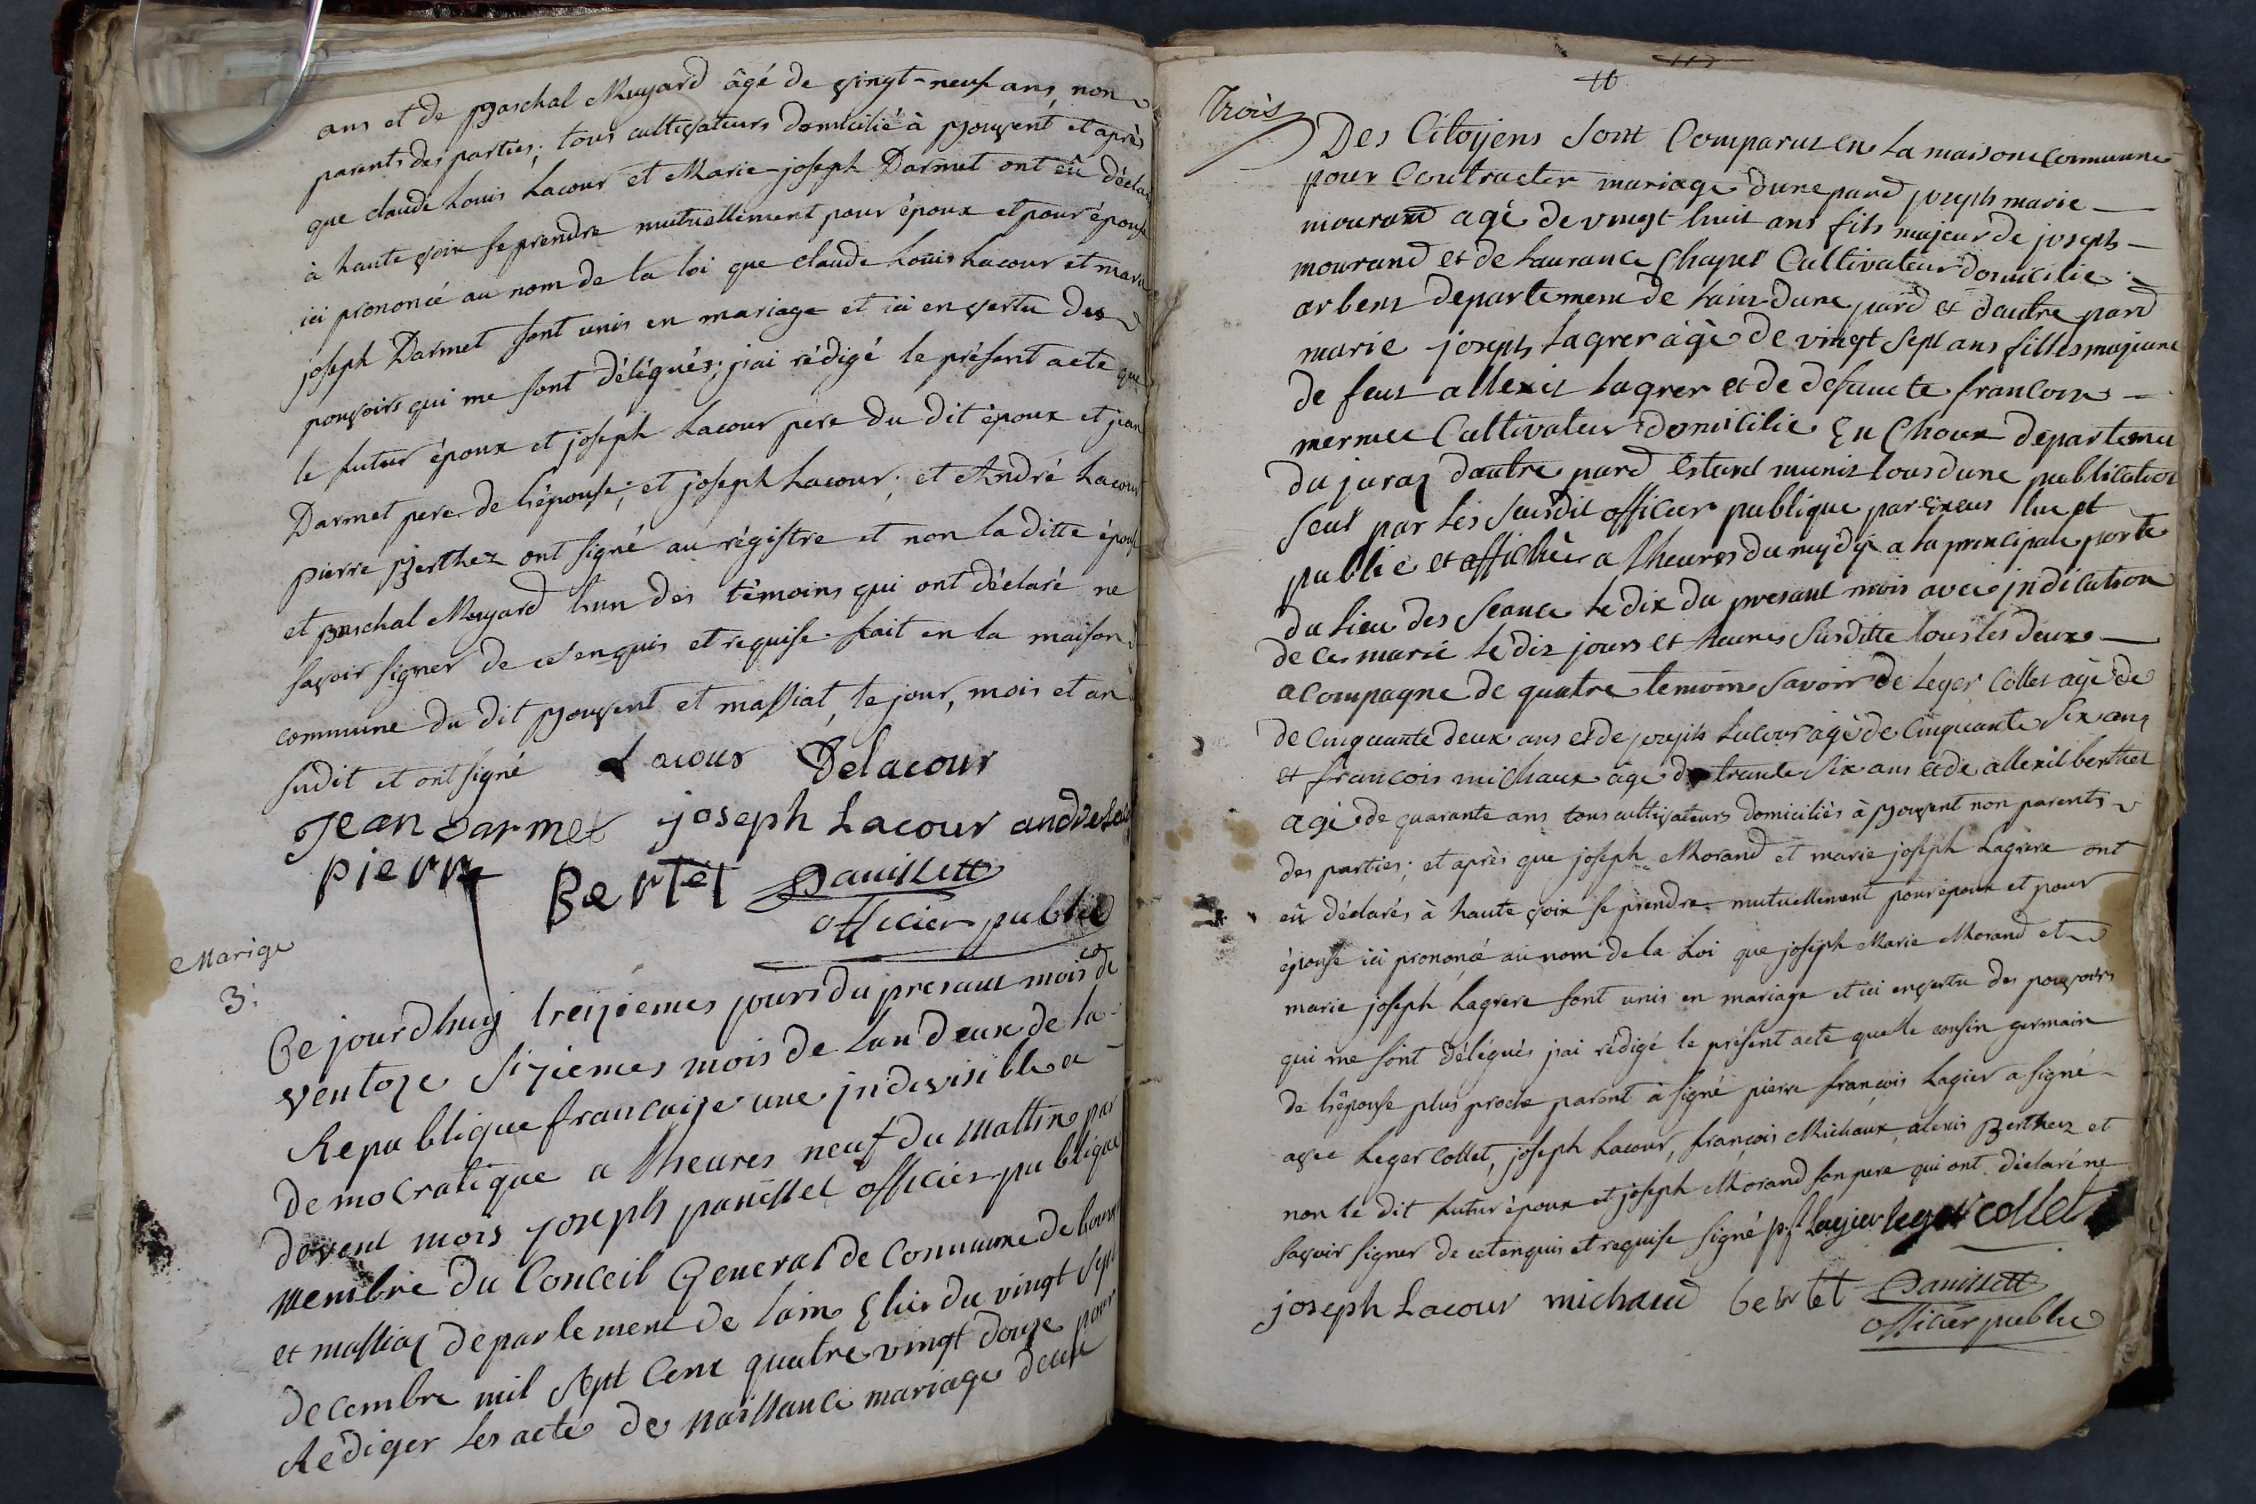 ans et de paschal Muyard âgé de vingt-neuf ans, non
parents des parties; tous cultivateurs domicilié à Bouvent et après
que claude Louis Lacour et Marie joseph Darmet ont eû déclaré
à haute voix se prendre mutuellement pour époux et pour épouse
ici prononcé au nom de la loi que claude Louis Lacour et marie
joseph Darmet sont unis en mariage et ici en vertu des
pouvoirs qui me sont délégués; j'ai rédigé le présent acte que
le futur époux et joseph Lacour pere du dit époux et jean
Darmet pere de l'épouse; et joseph Lacour; et André Lacour
pierre Berthez ont signé au régistre et non la ditte épouse
et paschal Muyard l'un des témoins qui ont déclaré ne
savoir signer de ce enquis et requise. fait en la maison
commune du dit Bouvent et massiat, le jour, mois et an
sudit et ont signé Lacour Delacour
Jean Darmet joseph Lacour andre Lacour
pierre Bertet Pauillett
officier public
Marige
3.
Ce jourdhuy treiziemes jours du presant mois de
ventoze siziemes mois de Lan deux de la
Republique francaize une jndevisible a
democratique a lheures neuf du mattin par
devent mois joseph pauillet officier publique
membre du Conceil General de Commune de bouvent
et massiaz departement de lain Elue du vingt sept
decembre mil sept Cent quatre vingt douze pour
Rediger les acte de naissance mariage deces
10
trois
Des Citoyens sont Comparus en la maisone Commune
pour Contracter mariage dune pard joseph marie
mourand agé de vingt huit ans fils majeur de joseph
mourand et de Laurance Chapel Cultivateur domicilié
arbent departement de lain dune pard et dautre pard
marie joseph lagrer âgé de vingt sept ans filles majeure
de feut allexis lagrer et de defuncte francoise
mermet Cultivateur domicilié En Choux departement
du juraz dautre pard Estant muniz tous dune publication
seul par les susdit officier publique par Exeus lue et
publié et affichée a lheures du mydy a la principale porte
du lieu des seance le dix du presant mois avec jndication
de ces marié le dis jours et heures susditte tous les deux
acompagne de quatre temoins savoir de Leger Collet agé de
de cinquante deux ans et de joseph Lacour agé de cinquante six ans
et francois michaux âge de trante six ans et de allexit berthet
agé de quarante ans tous cultivateurs domiciliés à Bouvent non parents
des parties; et après que joseph Morand et marie joseph Lagrere ont
eû déclarés à haute voix se prendre mutuellement pour époux et pour
épouse ici prononcé au nom de la Loi que joseph Marie Morand et
marie joseph Lagrere sont unis en mariage et ici en vertu des pouvoirs
qui me sont délégués j'ai rédigé le présent acte que le cousin germain
de l'épouse plus proche parent à signé pierre françois Lagier a signé
avec Leger Collet, joseph Lacour, françois Michaux, alexis Berthez et
non le dit futur époux et joseph Morand son pere qui ont déclaré ne
savoir signer de cet enquis et requise signé p. f. Lagier leger collet
joseph Lacour michaud bertet Pauillett
officier public